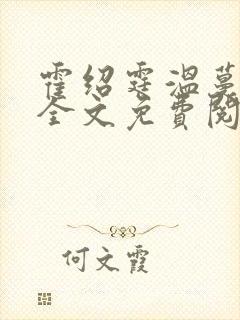 霍绍霆温蔓
全文免费阅
何文霞